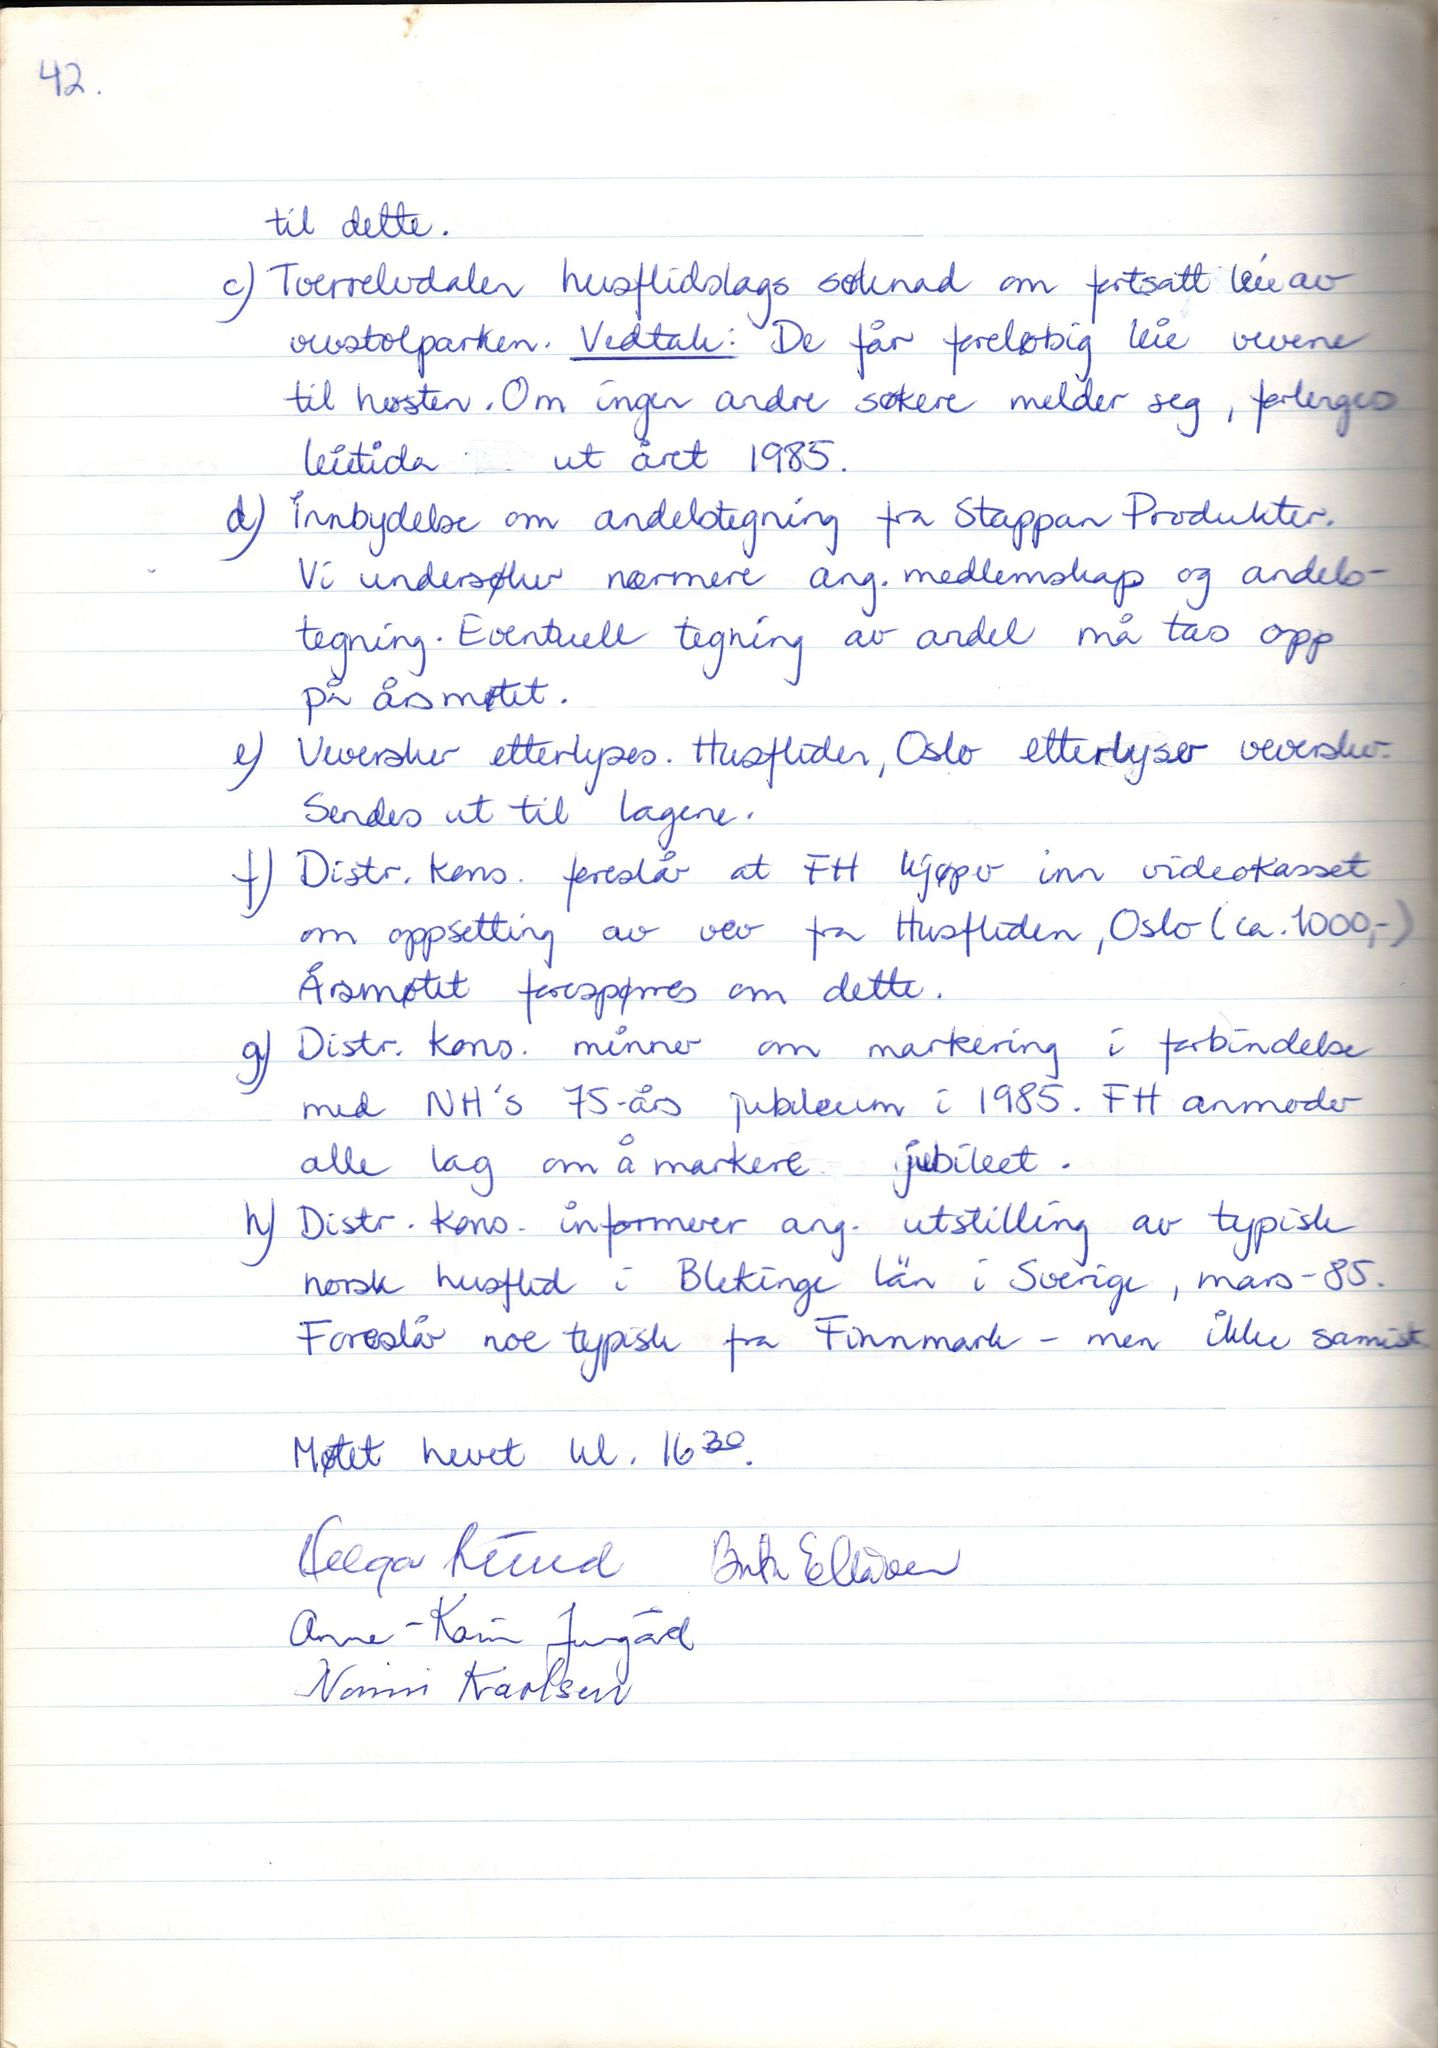 42.
til dette.
c) Tverrelvdalen husflidslags søknad om fortsatt leie av
vevstolparken. Vedtak: De får foreløbig leie vevene
til høsten. Om ingen andre søkere melder seg, forlenges
leietida ut året 1985.
d) Innbydelse om andelstegning fra Stappan Produkter.
Vi undersøker nærmere ang. medlemskap og andels-
tegning. Eventuell tegning av andel må tas opp
på årsmøtet.
e) Veversker etterlyses. Husfliden, Oslo etterlyser veversker.
Sendes ut til lagene.
f) Distr. kons. foreslår at FH kjøper inn videokasset
om oppsetting av vev fra Husfliden, Oslo (ca. 1000,-)
Årsmøtet forespørres om dette.
g) Distr. kons. minner om markering i forbindelse
med NH's 75-års jubileum i 1985. FH anmoder
alle lag om å markere jubileet.
h) Distr. kons. informerer ang. utstilling av typisk
norsk husflid i Blekinge län i Sverige, mars-85.
Foreslår noe typisk fra Finnmark - men ikke samisk
Møtet hevet kl. 16³⁰.
Helga
Anne-Karin
Karlsen